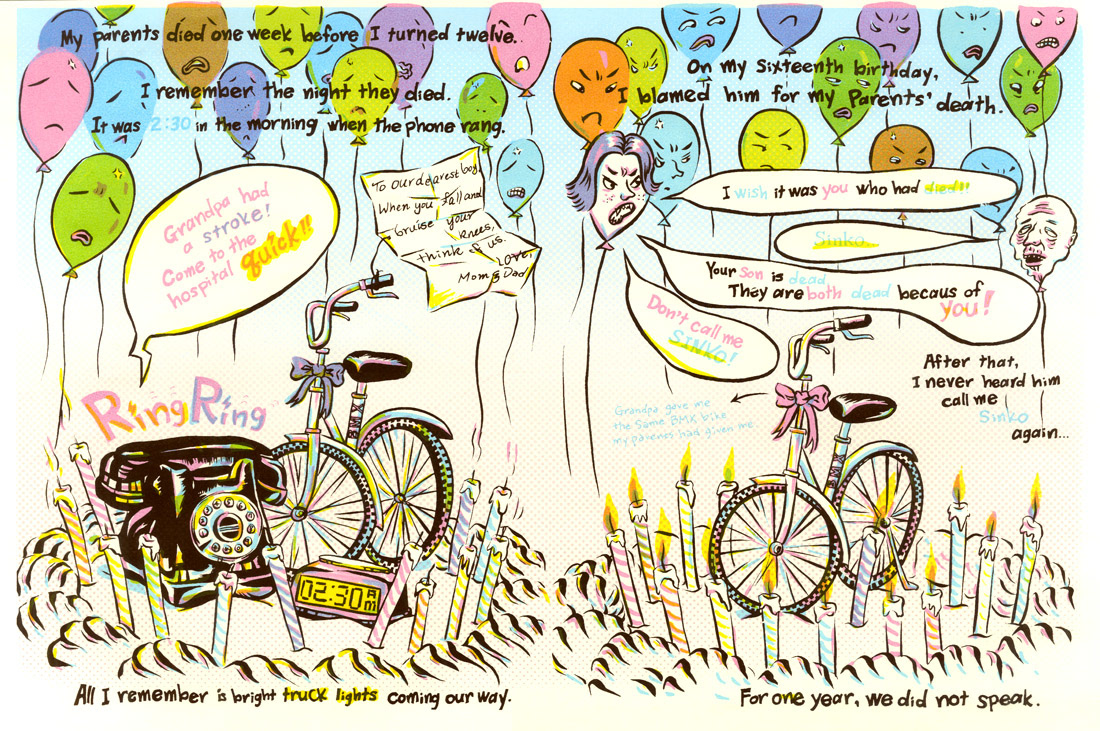 My parents died one week before I turned twelve.
I remember the night they died.
It was 2:30 in the morning when the phone rang.
Grandpa had
a stroke!
Come to the
hospital quick!!
To our dearest boy,
When you fall and
bruise your
knees,
think of us.
LOVE,
Mom & Dad
RingRing
BMX
02:30 AM
All I remember is bright truck lights coming our way.
On my Sixteenth birthday,
I blamed him for my Parents' death.
I wish it was you who had died!!
Sinko...
Your Son is dead
They are both dead becaus of
you!
Don't call me
SINKO!
After that,
I never heard him
call me
Sinko
again...
Grandpa gave me
the Same BMX bike
my parents had given me
BMX
For one year, we did not speak.